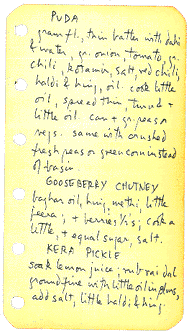 PUDA
gram fl., thin batter with dahi
& water, gr. onion, tomato, gr.
chili, kotamir, salt, red chili,
haldi & hing, oil. cook little
oil, spread thin, turn &
little oil. can + gr. peas or
veg. same with crushed
fresh peas or green corn instead
of basin.
GOOSEBERRY CHUTNEY
baghar oil, hing, methi, little
jeera; + berries ½'s; cook a
little, + equal sugar, salt.
KERA PICKLE
soak lemon juice; rub rai dal
ground fine with little oil in
add salt, little haldi & hing.